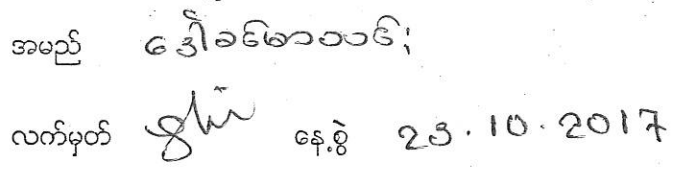 အမည် ဒေါ်ခင်မာသင်း
လက်မှတ် နေ့စွဲ 23.10.2017